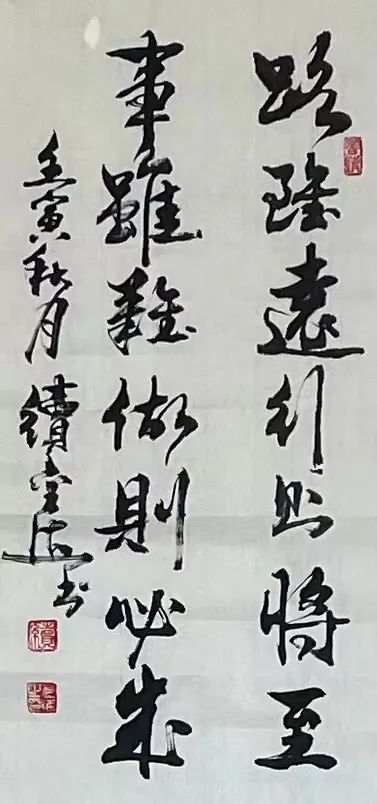 路雖遠行則將至
事雖難做則必成
壬寅秋月 續 書